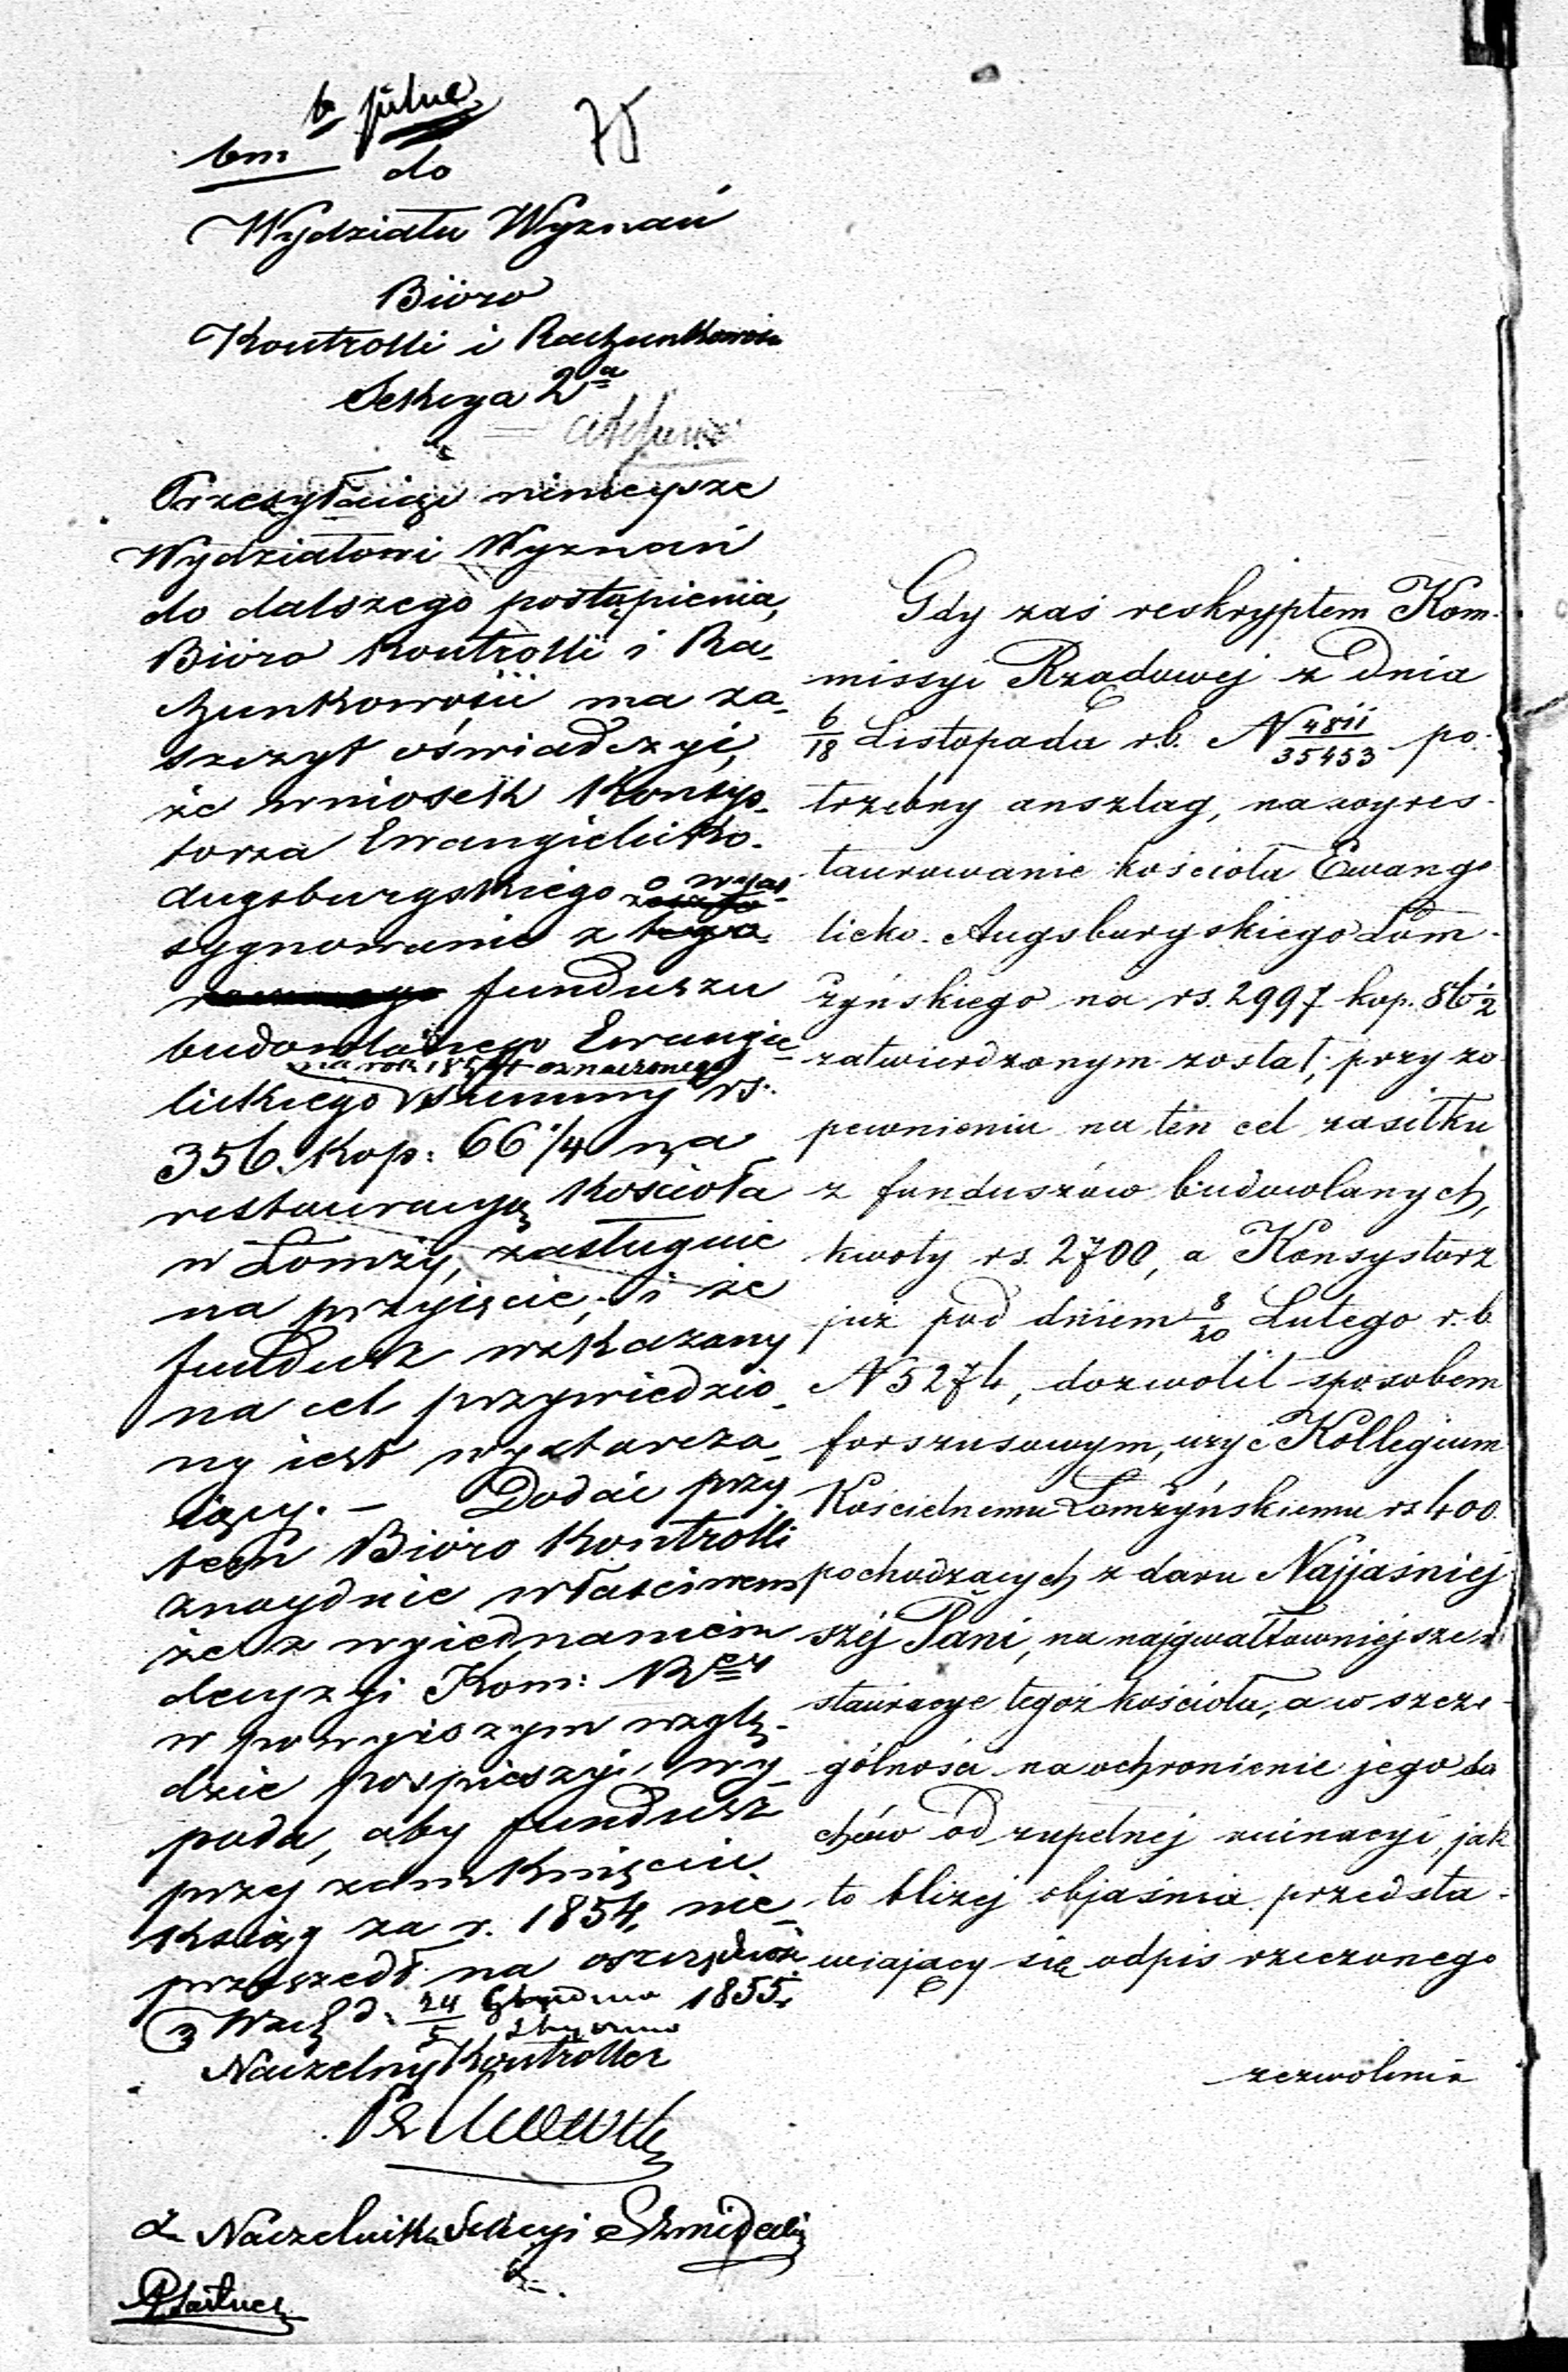 pilne
75
do
Wydziału Wyznań
Bióro
Kontrolli i Rachunkowości
Sekcya 2ª
Przesyłaiąc ninieysze
Wydziałowi Wyznań
do dalszego postąpienia,
Bióro Kontrolli i Ra-
chunkowości ma za-
szczyt oświadczyć,
że wniosek Konsys-
torza Ewangielicko-
Augsburgskiego o wyas-
sygnowanie z
funduszu
budowlanego Ewangie-
na rok 1854 oznaczonego
lickiego summy rs.
356. Kop: 66 1/4 na
restauracyą Kościoła
w Łomży, zasługuie
na przyięcie, i że
fundusz wskazany
na cel przywiedzio-
ny iest wystarcza-
iący. — Dodać przy
tem Bióro Kontrolli
znayduie właściwem
że z wyiednaniem
decyzyi Kom: Rey
w powyższym wzglę-
dzie pospieszyć wy-
pada, aby fundusz
przy zamknięciu
Ksiąg za r. 1854, nie-
przeszedł na oszczędność
d. 24/5 Grudnia Stycznia 1855.
Naczelny Kontroller
Naczelnik Sekcyi
Gdy zaś reskryptem Kom-
missyi Rządowej z dnia
6/18 Listopada r.b. N 4811/35453 po-
trzebny anszlag, na wyres-
taurowanie kościoła Ewange
licko-Augsburgskiego Łom-
żyńskiego na rs. 2997 kop. 86½
zatwierdzonym został, przy za
pewnieniu na ten cel zasiłku
z funduszów budowlanych,
kwoty rs. 2700, a Konsystorz
już pod dniem 8/20 Lutego r.b.
N 5274, dozwolił sposobem
forszusowym, użyć Kollegium
Kościelnemu Łomżyńskiemu rs 400
pochodzących z daru Najjaśniej
szej Pani, na najgwałtowniejsze re
stauracye tegoż kościoła, a w szcze-
gólności na ochronienie jego da
chów od zupełnej ruinacyi, jak
to bliżej objaśnia przedsta-
wiający się odpis rzeczonego
zezwolenia